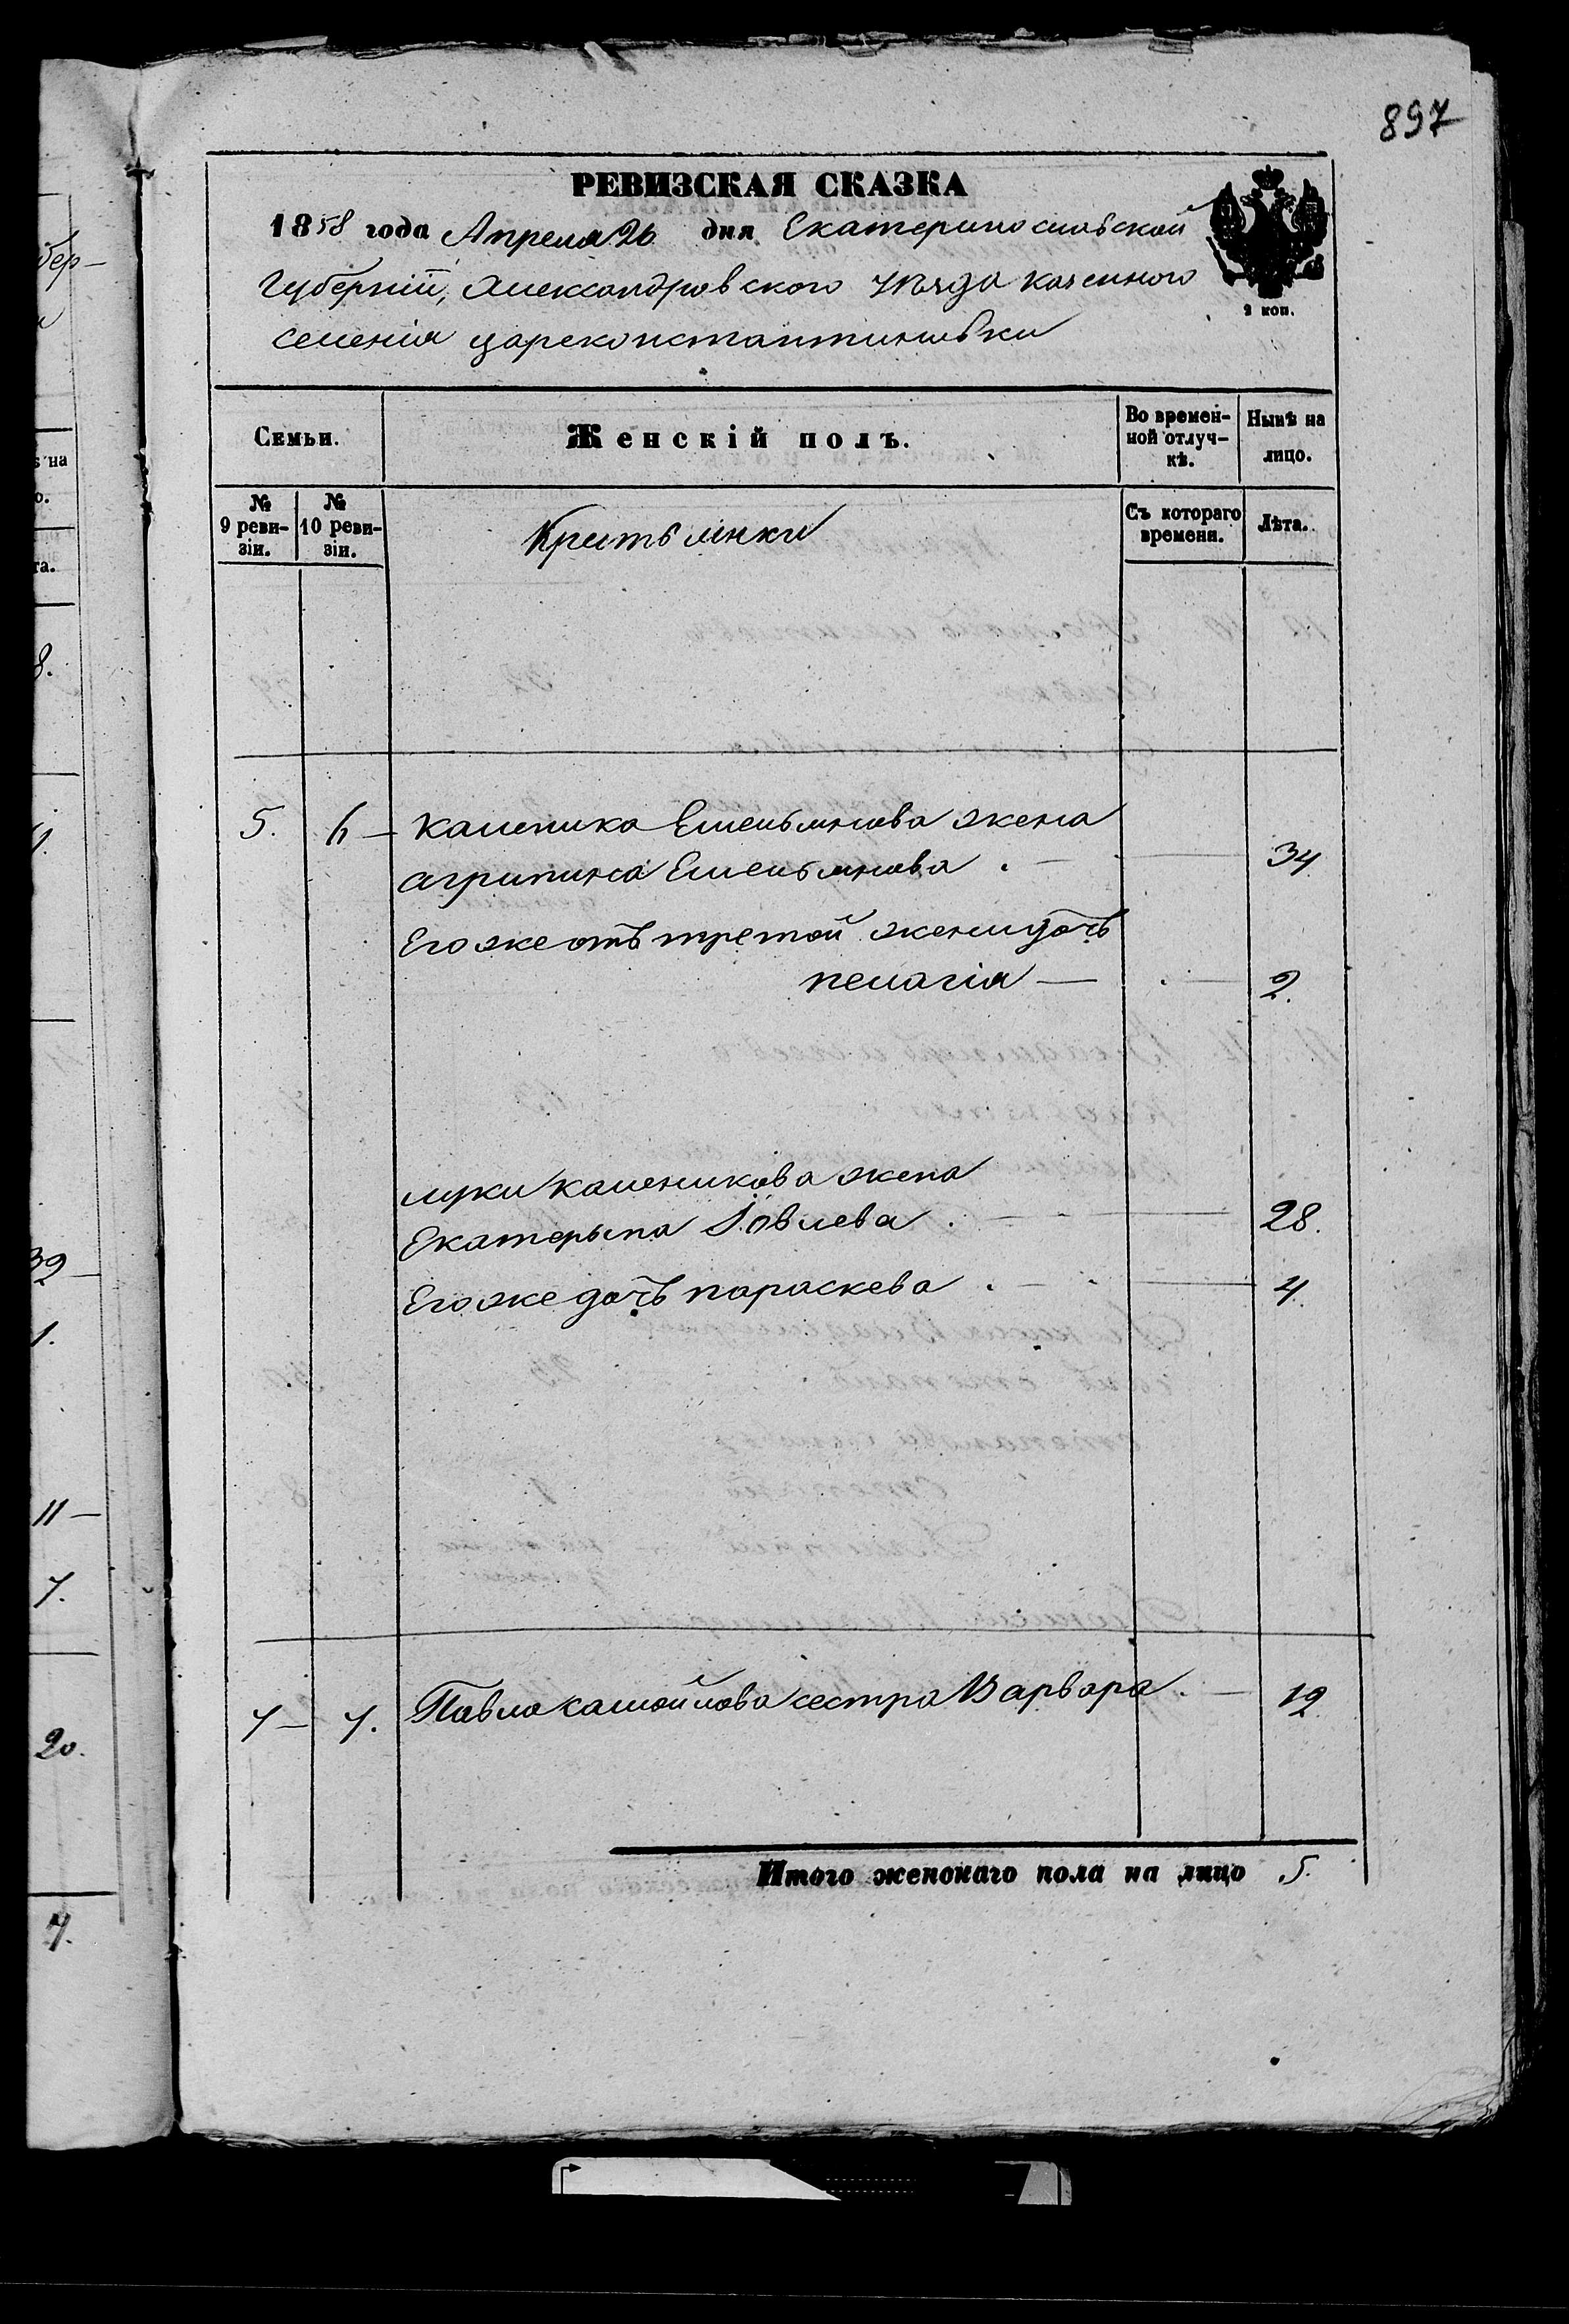 897
РЕВИЗСКАЯ СКАЗКА
1858 года Апреля 26 дня Екатеринославской
Губерніи, Александровского уѣзда казенного
селенія цареконстантиновки
2 коп.
Семьи.
Женскій полъ.
Во времен-
ной отлуч-
кѣ.
Нынѣ на
лицо.
№
9 реви-
зіи.
№
10 реви-
зіи.
Съ котораго
времени.
Лѣта.
5. 6 — каленика Емельянова жена
агрипина Емельянова . — 34
Его же отъ третой жени дочъ
пелагія — . — 2.
луки каленикова жена
Екатерына Іовлева . — 28.
Его же дочъ параскева . — 4.
7 — 7. Павла самойлова сестра Варвара . — 19
Итого женскаго пола на лицо 5.
бер-
ѣ на
о.
та.
8.
39 —
1.
11 —
7.
20.
7.